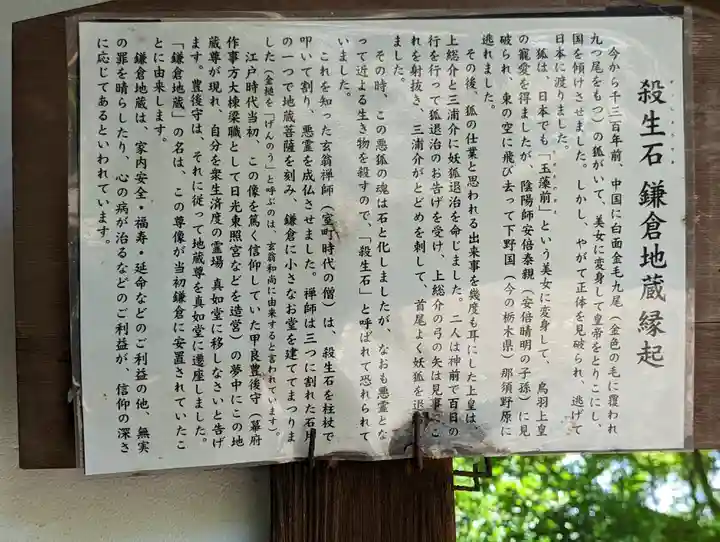 殺生石 鎌倉地蔵縁起
今から千三百年前、中国に白面金毛九尾（金色の毛に覆われ
九つ尾をもつ）の狐がいて、美女に変身して皇帝をとりこにし、
国を傾けさせました。しかし、やがて正体を見破られ、逃げて
日本に渡りました。
狐は、日本でも「玉藻前」という美女に変身して、鳥羽上皇
の寵愛を得ましたが、陰陽師安倍泰親（安倍晴明の子孫）に見
破られ、東の空に飛び去って下野国（今の栃木県）那須野原に
逃れました。
その後、狐の仕業と思われる出来事を幾度も耳にした上皇は、
上総介と三浦介に妖狐退治を命じました。二人は神前で百日の
行を行って狐退治のお告げを受け、上総介の弓の矢は見事
を射抜き、三浦介がとどめを刺して、首尾よく妖狐を退
ました。
その時、この悪狐の魂は石と化しましたが、なおも悪霊とな
って近よる生き物を殺すので、「殺生石」と呼ばれて恐れられて
いました。
これを知った玄翁禅師（室町時代の僧）は、殺生石を柱杖で
叩いて割り、悪霊を成仏させました。禅師は三つに割れた石片
の一つで地蔵菩薩を刻み、鎌倉に小さなお堂を建ててまつりま
した（金槌を「げんのう」と呼ぶのは、玄翁和尚に由来すると言われています）。
江戸時代当初、この像を篤く信仰していた甲良豊後守（幕府
作事方大棟梁職として日光東照宮などを造営）の夢中にこの地
蔵尊が現れ、自分を衆生済度の霊場 真如堂に移しなさいと告げ
ます。豊後守は、それに従って地蔵尊を真如堂に遷座しました。
「鎌倉地蔵」の名は、この尊像が当初鎌倉に安置されていたこ
とに由来します。
鎌倉地蔵は、家内安全・福寿・延命などのご利益の他、無実
の罪を晴らしたり、心の病が治るなどのご利益が、信仰の深さ
に応じてあるといわれています。